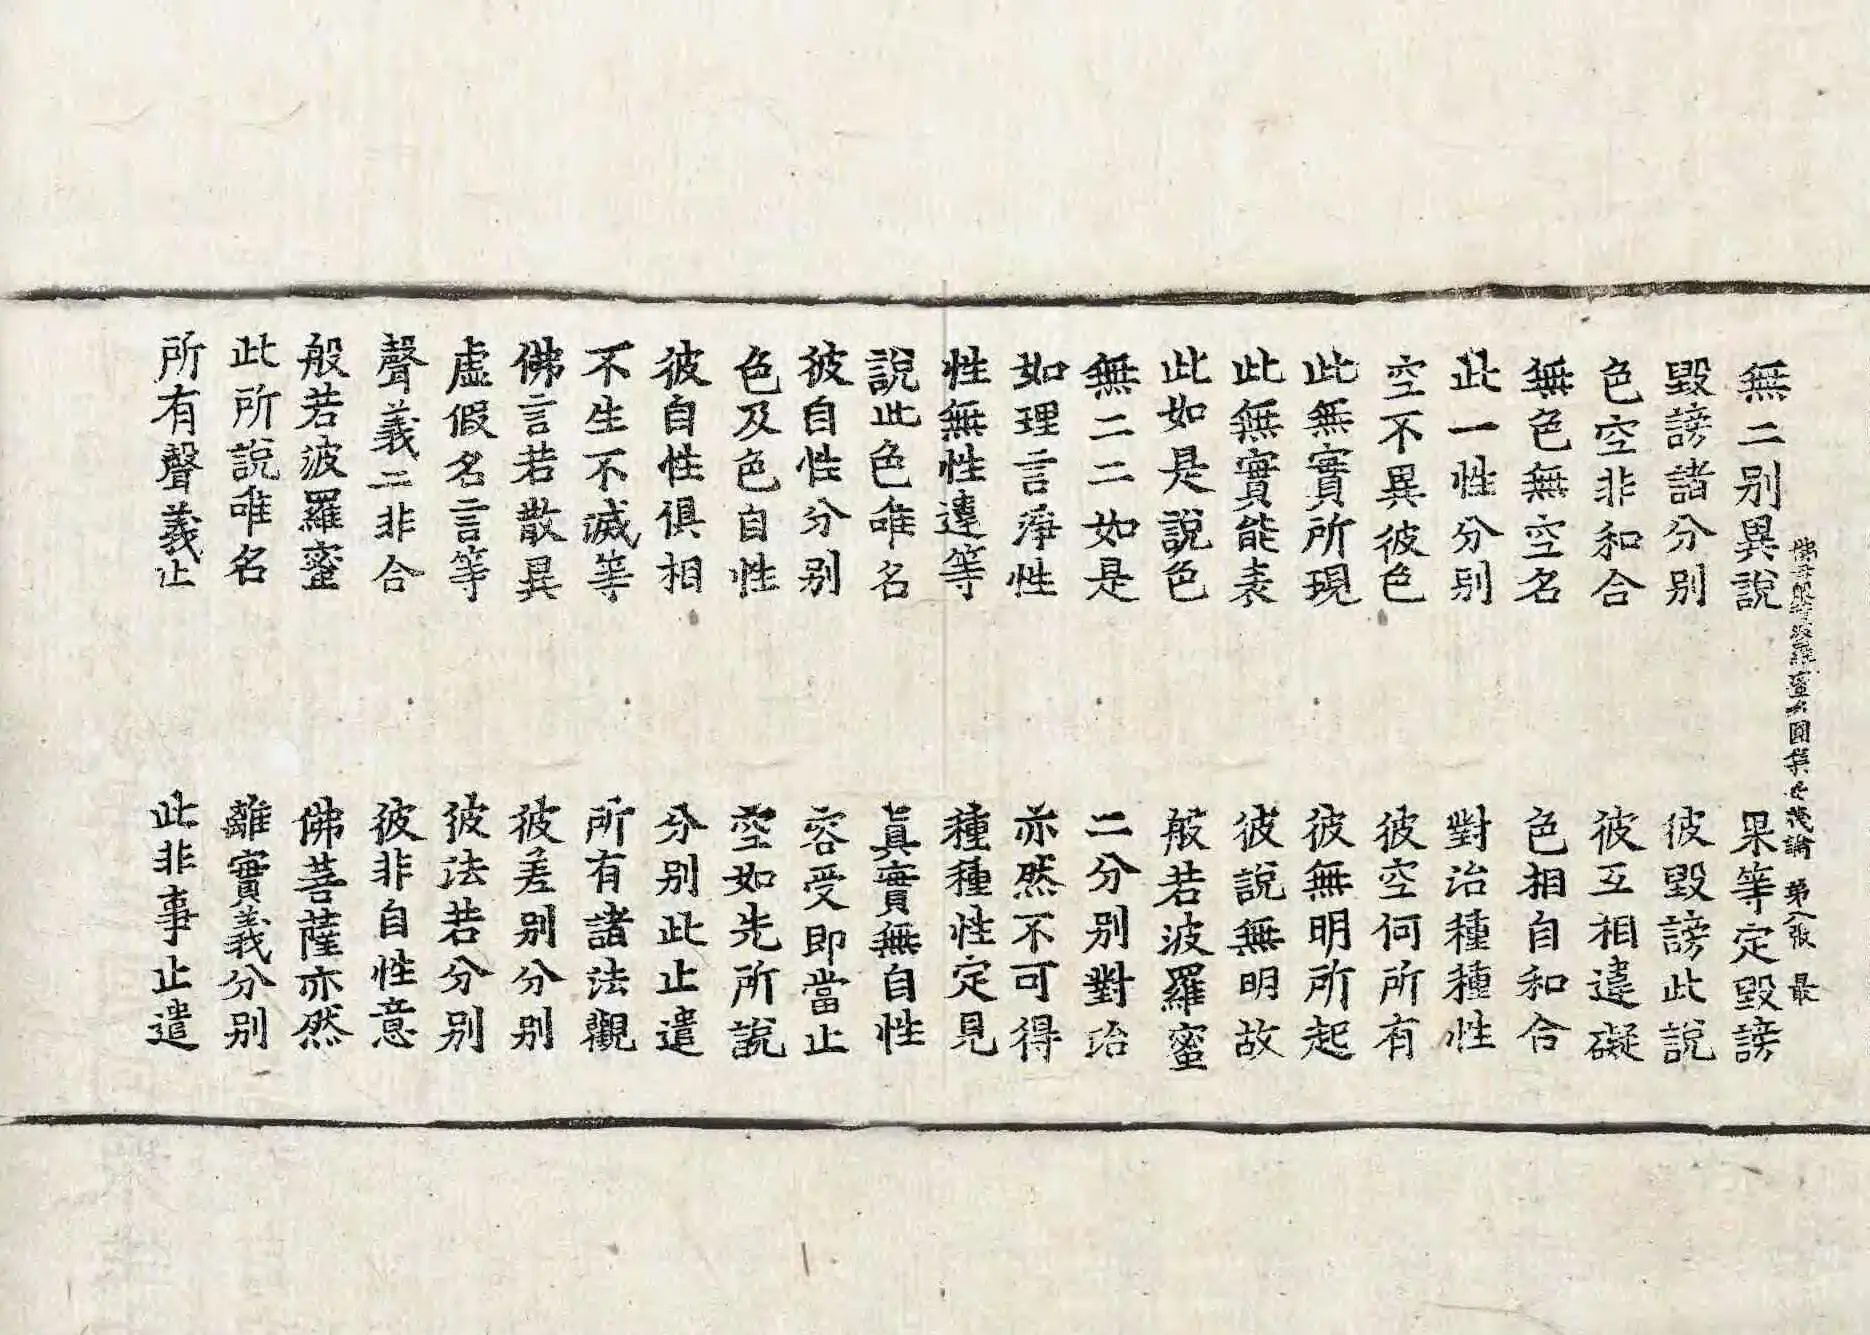 佛母般若波羅蜜多圓集要義論 第八張 最
無二別異說 果等定毀謗
毀謗諸分別 彼毀謗此說
色空非和合 彼互相違礙
無色無空名 色相自和合
此一性分別 對治種種性
空不異彼色 彼空何所有
此無實所現 彼無明所起
此無實能表 彼說無明故
此如是說色 般若波羅蜜
無二二如是 二分別對治
如理言淨性 亦然不可得
性無性違等 種種性定見
說此色唯名 眞實無自性
彼自性分別 容受即當止
色及色自性 空如先所說
彼自性俱相 分別此止遣
不生不滅等 所有諸法觀
佛言若散異 彼差別分別
虛假名言等 彼法若分別
聲義二非合 彼非自性意
般若波羅蜜 佛菩薩亦然
此所說唯名 離實義分別
所有聲義止 此非事止遣